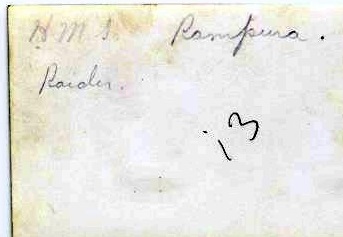 H.M.S. Rampura.
Raider.
13